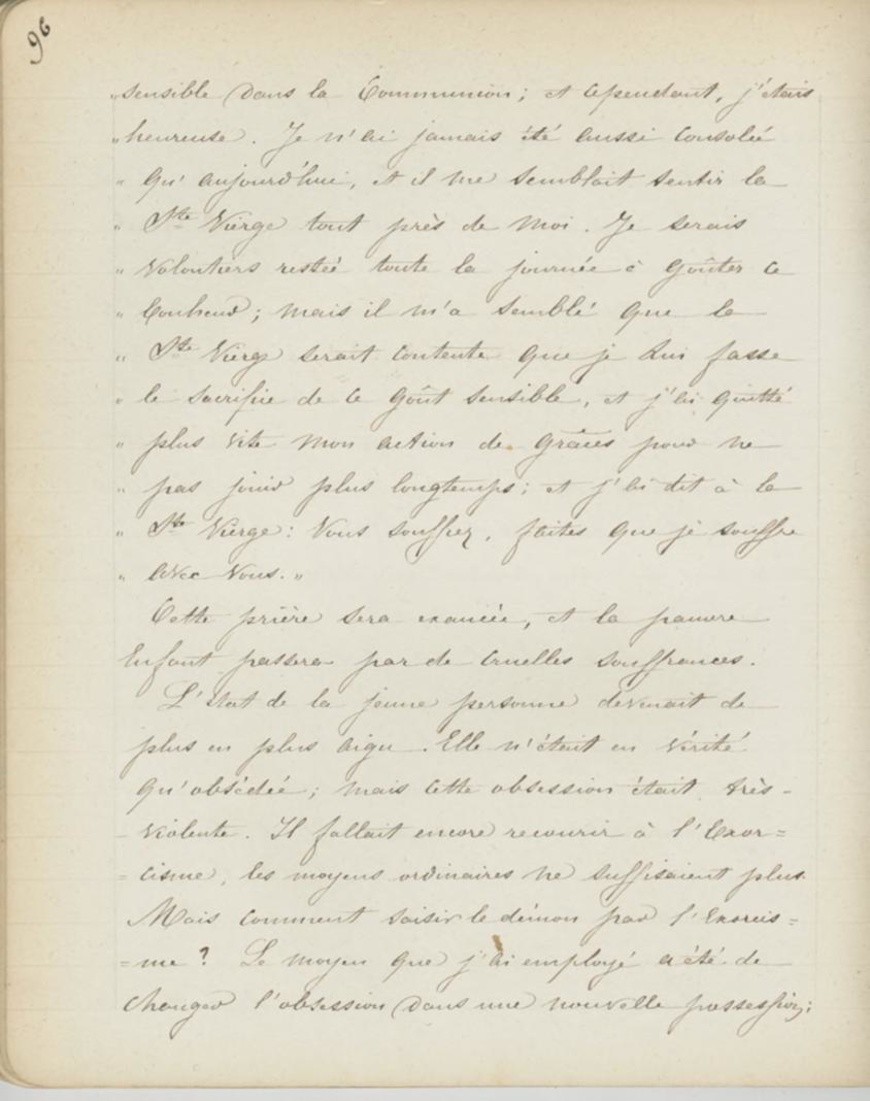 96
„ sensible dans la Communion ; et cependant, j'étais
„ heureuse. Je n'ai jamais été aussi consolée
„ qu'aujourd'hui, et il me semblait sentir la
„ Ste Vierge tout près de moi. Je serais
„ volontiers restée toute la journée à goûter ce
„ bonheur ; mais il m'a semblé que la
„ Ste Vierge serait contente que je lui fasse
„ le sacrifice de ce goût sensible, et j'ai quitté
„ plus vite mon action de grâces pour ne
„ pas jouir plus longtemps ; et j'ai dit à la
„ Ste Vierge : Vous souffrez, faites que je souffre
„ avec Vous. „
Cette prière sera exaucée, et la pauvre
Enfant passera par de cruelles souffrances.
L'état de la jeune personne devenait de
plus en plus aigu. Elle n'était en vérité
qu'obsédée ; mais cette obsession était très-
violente. Il fallait encore recourir à l'Exor=
=cisme, les moyens ordinaires ne suffisaient plus.
Mais comment saisir le démon par l'Exorcis=
=me ? Le moyen que j'ai employé a été de
changer l'obsession dans une nouvelle possession ;